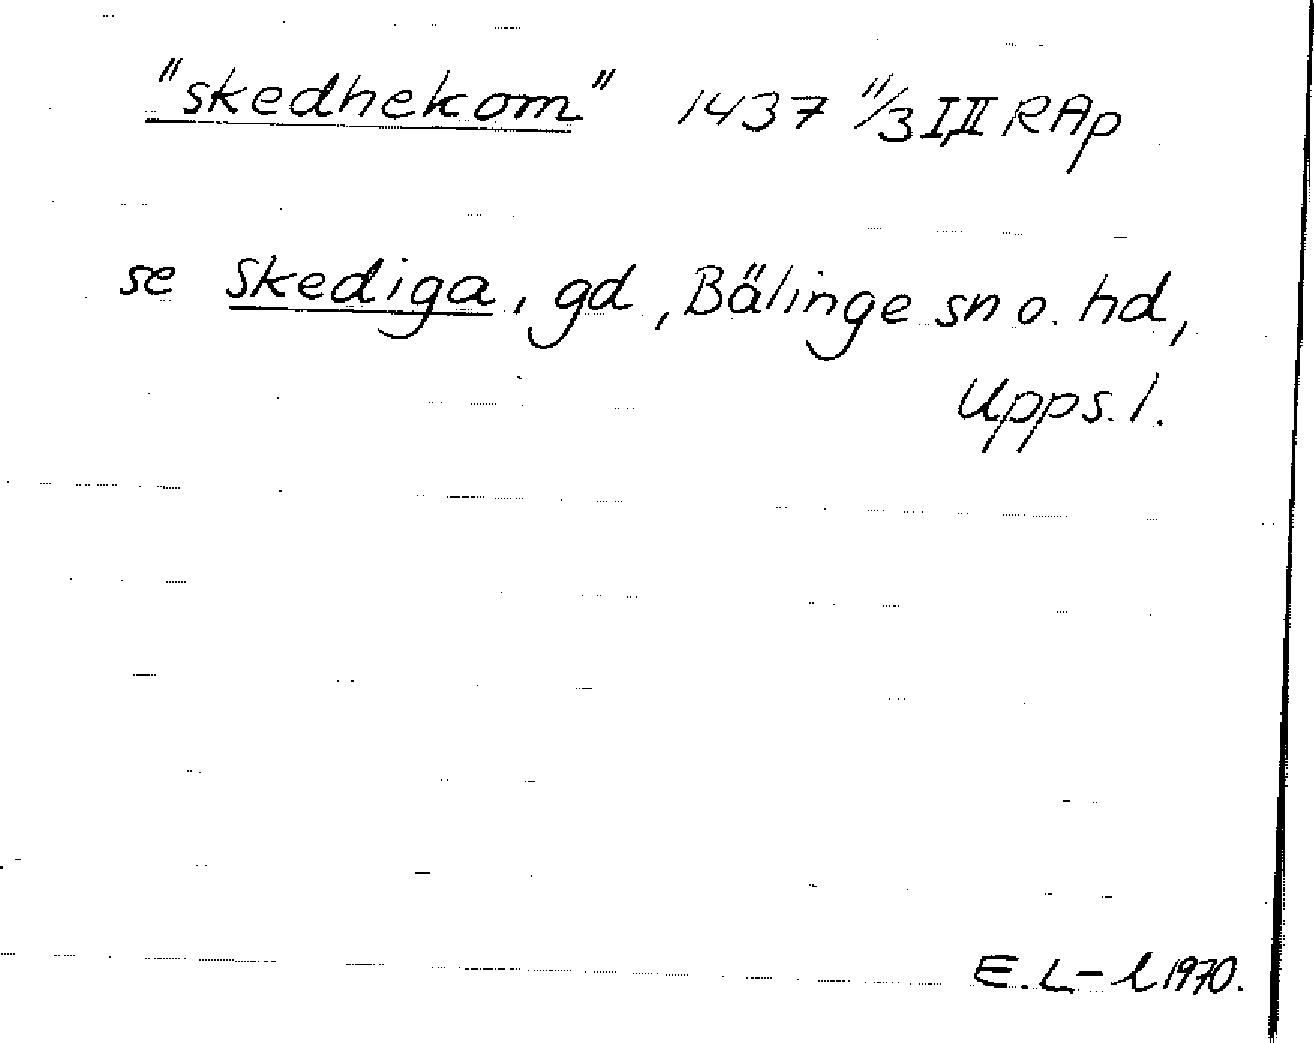 "skedhekom" 1437 11/3 I,II RAp
se Skediga, gd, Bälinge sn o. hd,
Upps. l.
E.L-l 1970.